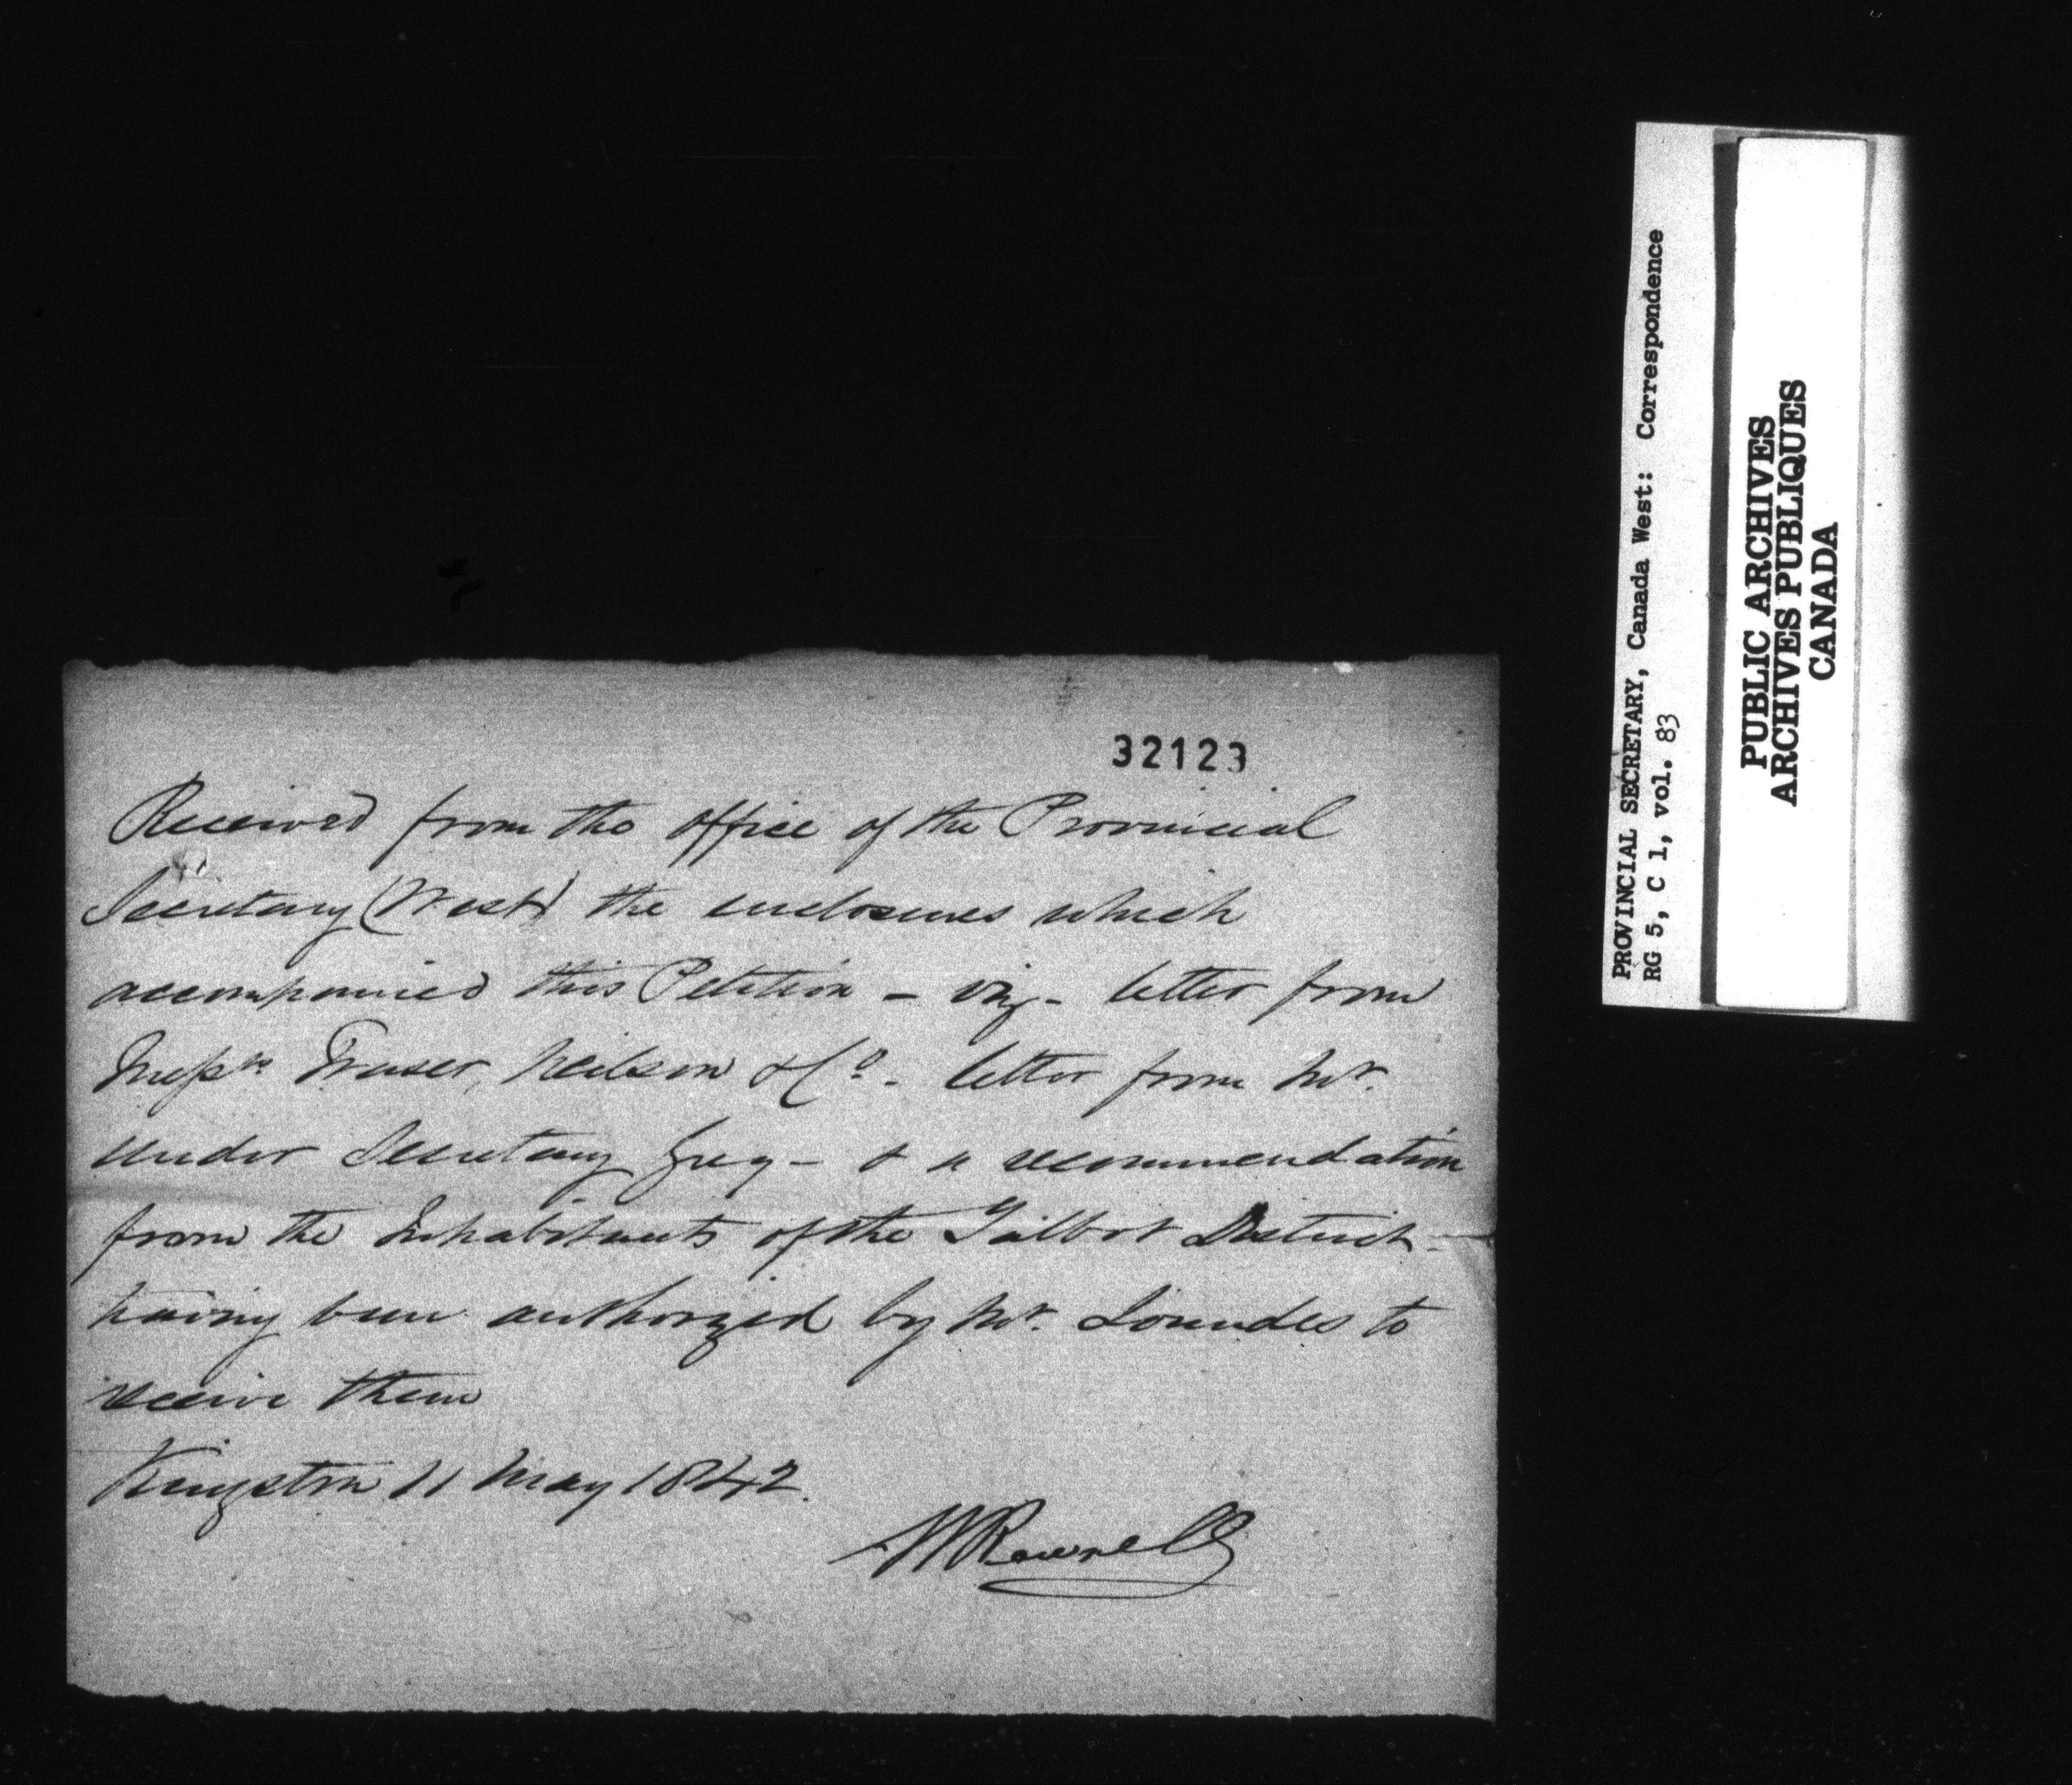 32123
Received from the office of the Provincial
Secretary (West) the enclosures which
accompanied this Petition - viz - letter from
Messrs Fraser, Neilson & Co. letter from Mr.
Under Secretary Grey - & a recommendation
from the Inhabitants of the Talbot District -
having been authorized by Mr. Lowndes to
receive them
Kingston 11 May 1842.
PROVINCIAL SECRETARY, Canada West: Correspondence
RG 5, C 1, vol. 83
PUBLIC ARCHIVES
ARCHIVES PUBLIQUES
CANADA